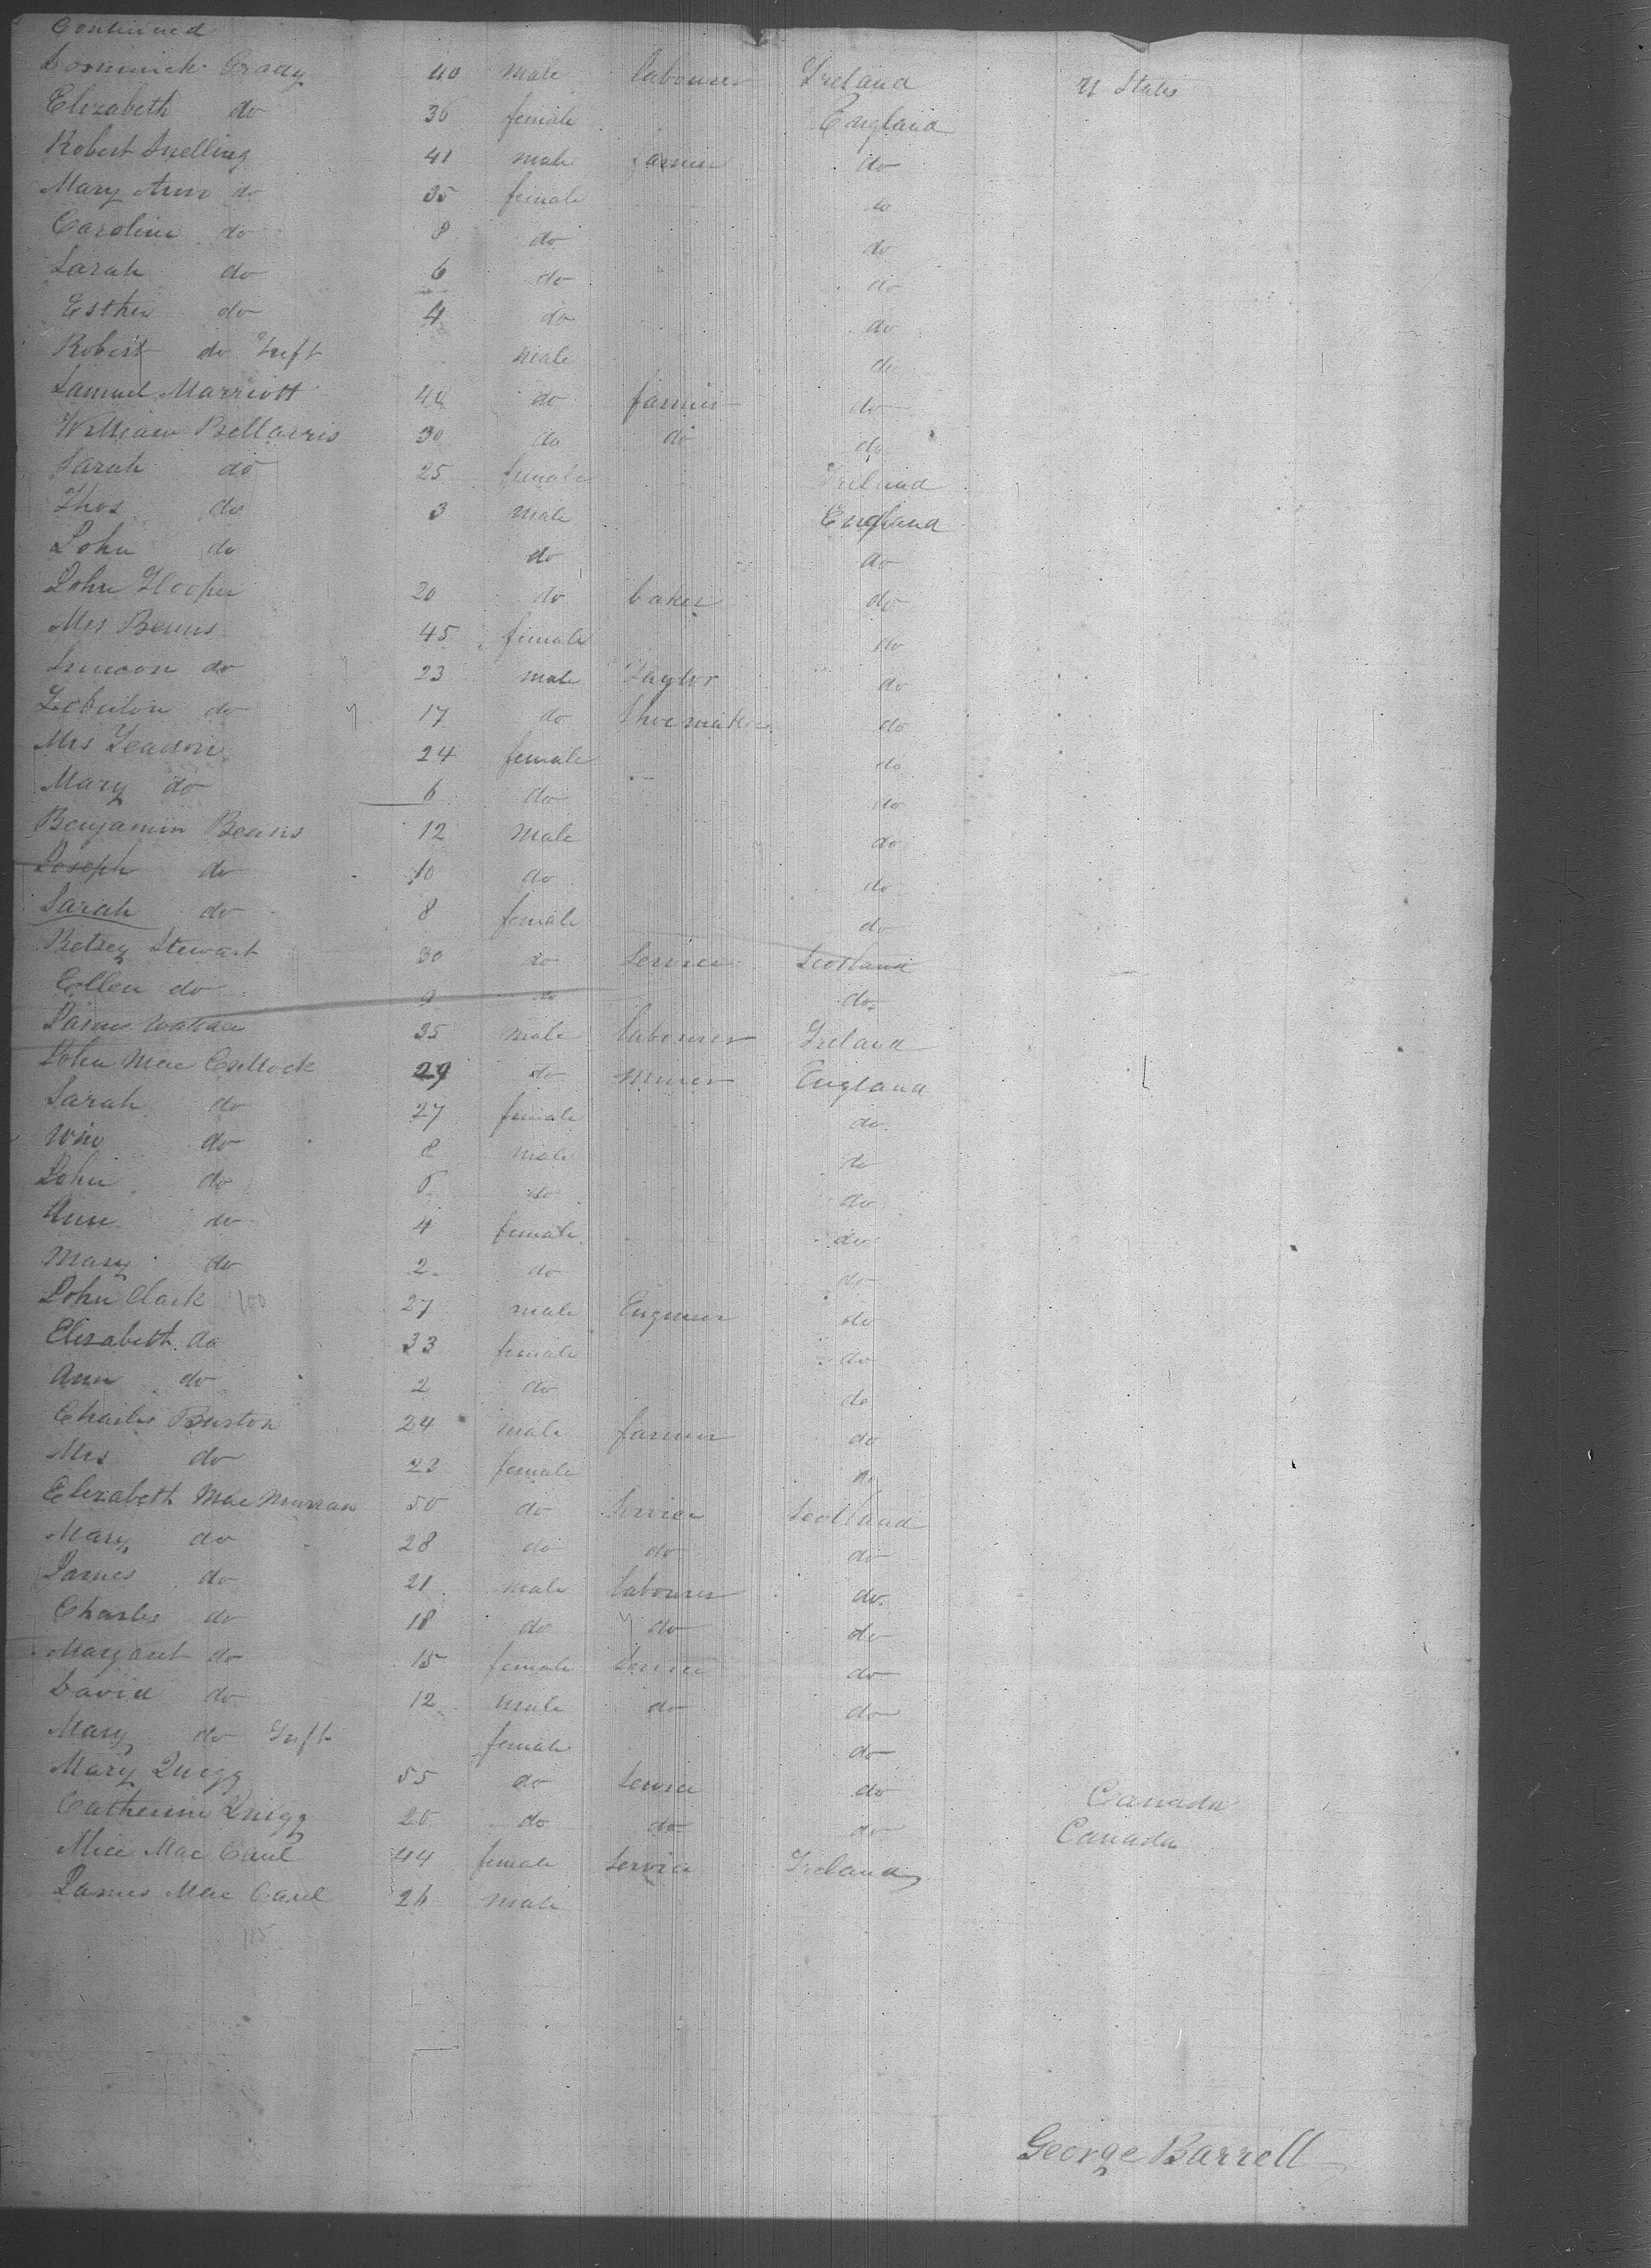 Continued
Dominick Grady 40 male labourer Ireland U States
Elizabeth do 30 female England
Robert Snelling 41 male farmer do
Mary Ann do 35 female do
Caroline do 8 do do
Sarah do 6 do do
Esther do 4 do do
Robert do Inft male do
Samuel Marriott 40 do farmer do
William Bellarris 30 do do do
Sarah do 25 female Ireland
Thos do 3 male England
John do do do
John Hooper 20 do baker do
Mrs Benns 45 female do
Simeon do 23 male Taylor do
do 17 do Shoemaker do
Mrs 24 female do
Mary do 6 do do
Benjamin Benns 12 male do
Joseph do 10 do do
Sarah do 8 female do
Betsey Stewart 30 do Service Scotland
Ellen do 9 do do
James 35 male labourer Ireland
John Mac Cullock 29 do miner England
Sarah do 27 female do
Wm do 8 male do
John do 6 do do
Ann do 4 female do
Mary do 2 do do
John Clark 100 27 male Engineer do
Elizabeth do 33 female do
Ann do 2 do do
Charles Burton 24 male farmer do
Mrs do 23 female do
Elizabeth Mac Murran 50 do Service Scotland
Mary do 28 do do do
James do 21 male labourer do
Charles do 18 do do do
Margaret do 15 female Service do
David do 12 male do do
Mary do Inft female do
Mary Quigg 55 do Service do Canada
Catherine Quigg 20 do do do Canada
Alice Mac Caul 44 female Service Ireland
James Mac Caul 26 male
115
George Barrell